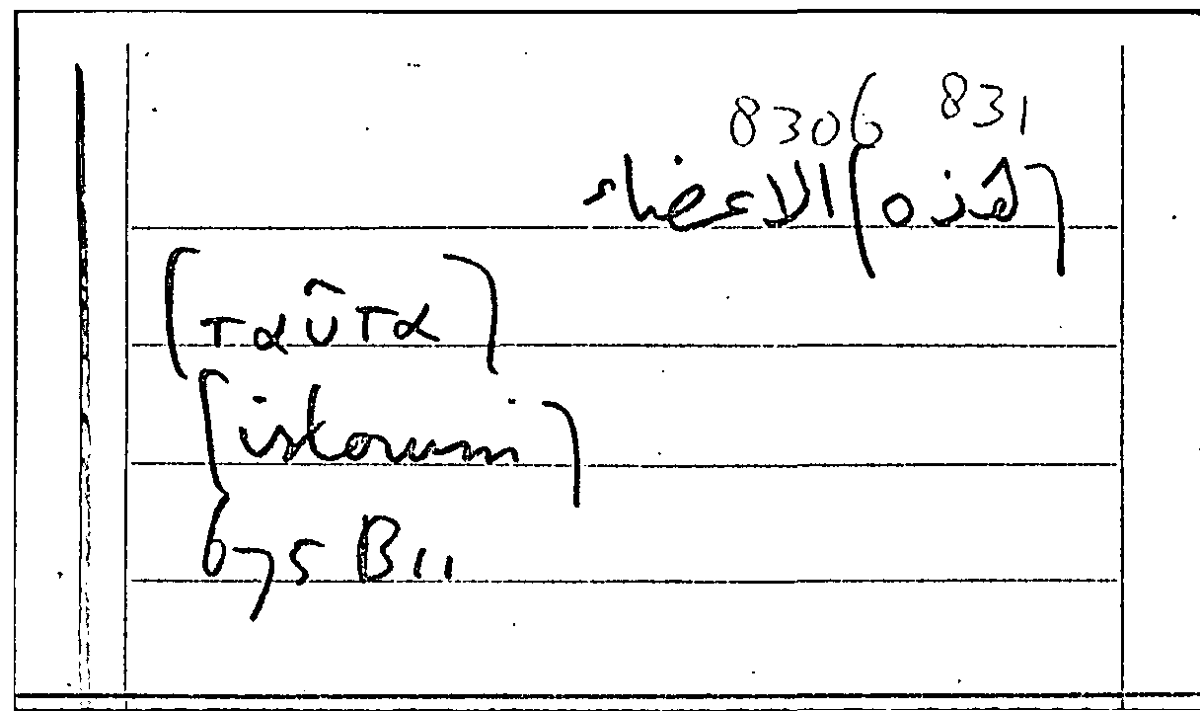 8306 831
[هذه] الاعضاء
[ταῦτα]
[istorum]
675 B11